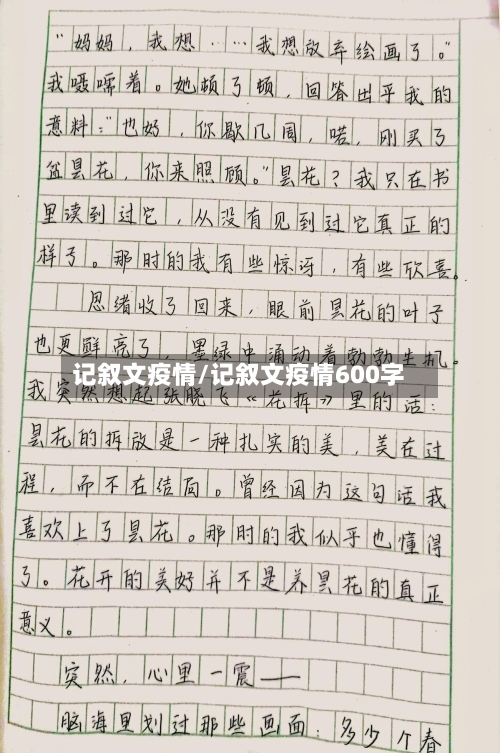 “妈妈，我想……我想放弃绘画了。”
我嗫嚅着。她顿了顿，回答出乎我的
意料：“也好，你歇几周，喏，刚买了
盆昙花，你来照顾。”昙花？我只在书
里读到过它，从没有见到过它真正的
样子。那时的我有些惊讶，有些欣喜。
思绪收了回来，眼前昙花的叶子
也更鲜亮了，墨绿中涌动着勃勃生机。
记叙文疫情/记叙文疫情600字
我突然想起张晓飞《花拆》里的话：
昙花的拆放是一种扎实的美，美在过
程，而不在结局。曾经因为这句话我
喜欢上了昙花。那时的我似乎也懂得
了。花开的美好并不是养昙花的真正
意义。
突然，心里一震——
脑海里划过那些画面：多少个春